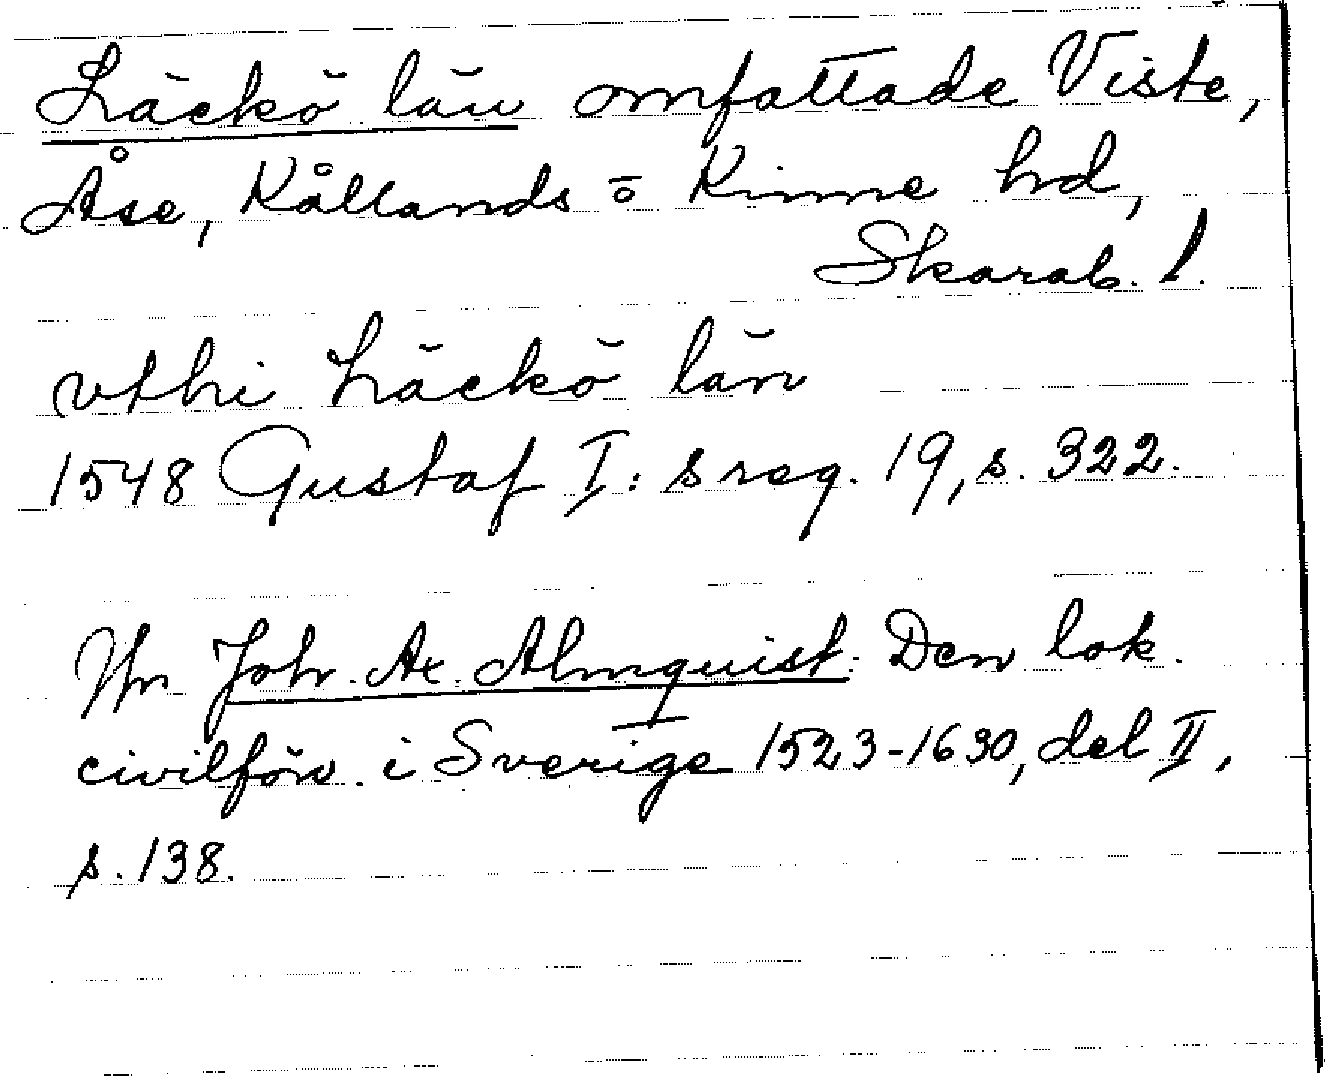 Läckö län omfattade Viste,
Åse, Kållands o Kinne hrd,
Skarab. l.
vthi Läckö län
1548 Gustaf I: s reg. 19, s. 322.
Jfr Joh. Ax. Almquist: Den lok.
civilförv. i Sverige 1523-1630, del II,
s. 138.